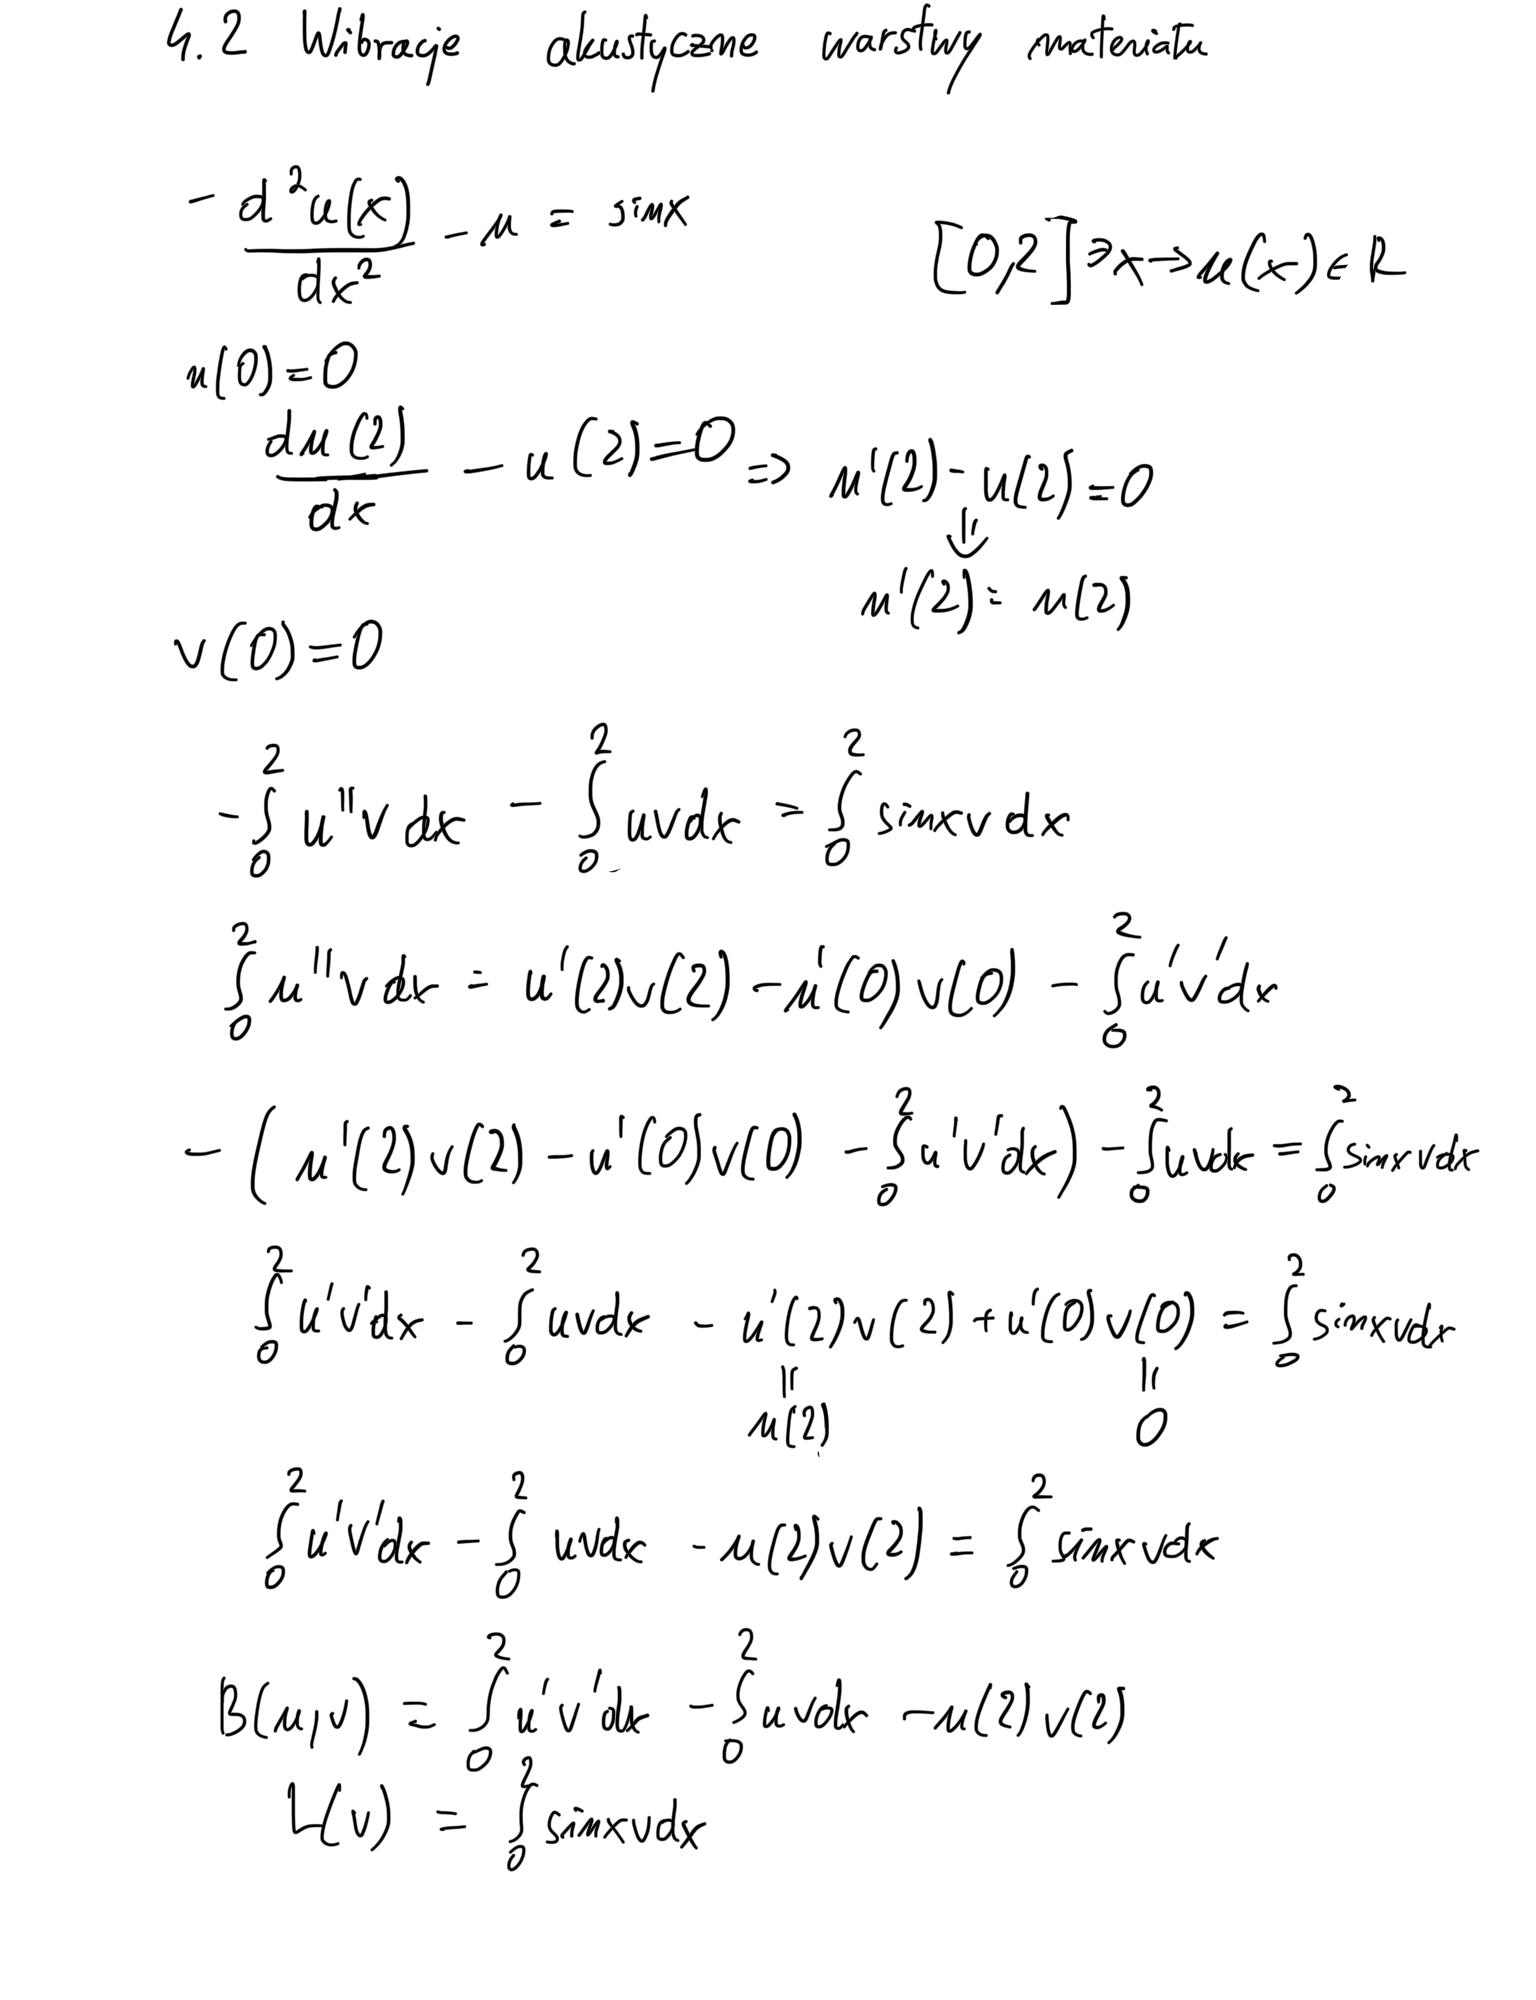 4.2 Wibracje akustyczne warstwy materiału
- d²u(x)/dx² - u = sinx
[0,2]∋x→u(x)∈R
u(0)=0
du(2)/dx - u(2)=0 => u'(2)-u(2)=0
⇓
u'(2) = u(2)
v(0)=0
-∫₀² u''v dx - ∫₀² uvdx = ∫₀² sinxv dx
∫₀² u''v dx = u'(2)v(2) - u'(0)v(0) - ∫₀² u'v'dx
-(u'(2)v(2) - u'(0)v(0) - ∫₀² u'v'dx) - ∫₀² uvdx = ∫₀² sinxvdx
∫₀² u'v'dx - ∫₀² uvdx - u'(2)v(2) + u'(0)v(0) = ∫₀² sinxvdx
|| ||
u(2) 0
∫₀² u'v'dx - ∫₀² uvdx - u(2)v(2) = ∫₀² sinxvdx
B(u,v) = ∫₀² u'v'dx - ∫₀² uvdx - u(2)v(2)
L(v) = ∫₀² sinxvdx